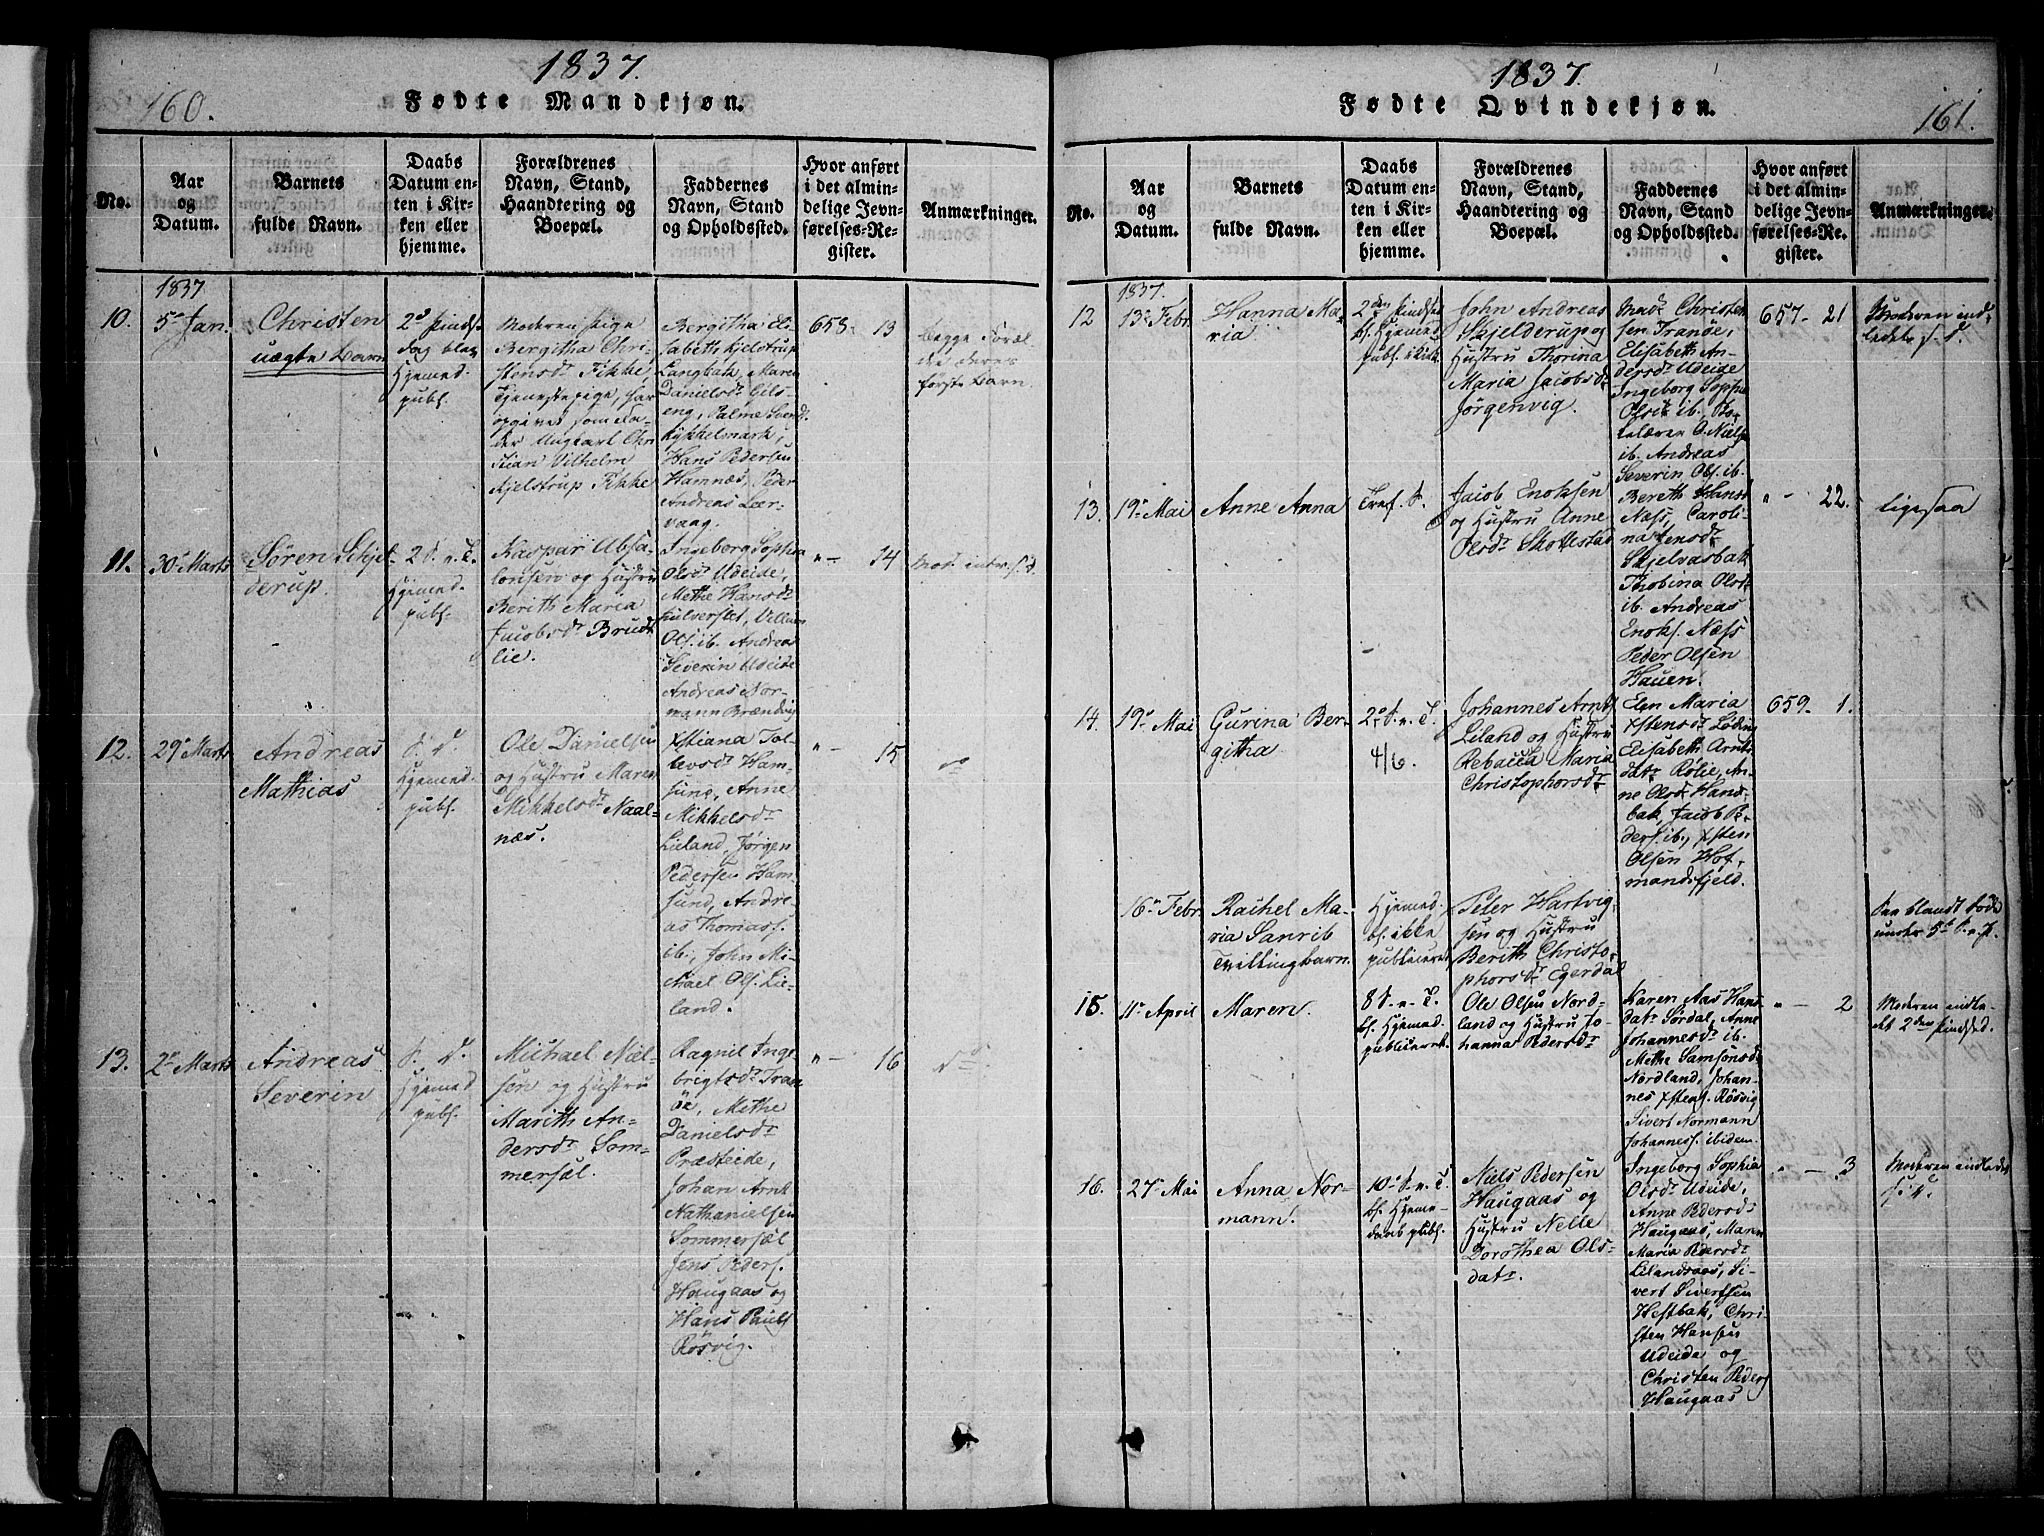 1837.
160.
Fødte Mandkjøn.
No.
Aar
og
Datum.
Barnets
fulde Navn.
Daabs
Datum en-
ten i Kir-
ken eller
hjemme.
Forældrenes
Navn, Stand,
Haandtering og
Boepæl.
Faddernes
Navn, Stand
og Opholdssted.
Hvor anført
i det almin-
delige Jevn-
førelses-Re-
gister.
Anmærkninger.
1837
10.
5te Jan.
Christen
uægte Barn
2d Pinds-
dag
Hjemmed.
publ.
Moderen Pige
Bergitha Chri-
stensdr Fikke,
Tjenestepige, har
opgivet som Fa-
der Ungkarl Chri
stian Vilhelm
Kjelstrup Fikke
Bergitha Eli-
sabeth Kjelstrup
Langbak, Maren
Danielsdr Gils-
eng,
Kykkelmark,
Hans Pedersen
Hamnæs, Peder
Andreas Leer-
vaag.
658-
13
begge Foræl
dre deres
første Barn.
11.
30 Marts
Søren Schjel-
derup.
2 S. n. T.
Hjemmed.
publ.
Kaspar Absa-
lonsen og Hustru
Berith Maria
Jacobsdr Brudt
lie.
Ingeborg Sophia
Olsdr Udeide,
Methe Hansdr
Hulverslet, Villum
Ols. ib. Andreas
Severin Udeide
Andreas Nor-
mann Brændvig
" -
14
Mod. entr. s. D.
12.
29 Marts
Andreas
Mathias
S. D.
Hjemmed.
publ.
Ole Danielsen
og Hustru Maren
Mikkelsdr Naal-
næs.
Xstiana Tol-
levsdr Ham-
sund, Anne
Mikkelsdr
Lieland, Jørgen
Pedersen Ham-
sund, Andre-
as Thomass.
ib., John Mi-
chael Ols. Lie-
land.
" -
15
do
13.
2 Marts
Andreas
Severin
S. D.
Hjemmed.
publ.
Michael Niel-
sen og Hustru
Marith An-
dersdr Som-
mersæl.
Ragnil Inge-
brigtsdr Tran
öe, Methe
Danielsdr
Præsteide,
Johan Arnt
Nathanielsen
Sommersæl
Jens Peders.
Haugaas og
Hans Pauls
Rösvig.
" -
16
do
1837.
161.
Fødte Qvindekjøn.
No.
Aar
og
Datum.
Barnets
fulde Navn.
Daabs
Datum en-
ten i Kir-
ken eller
hjemme.
Forældrenes
Navn, Stand,
Haandtering og
Boepæl.
Faddernes
Navn, Stand
og Opholdssted.
Hvor anført
i det almin-
delige Jevn-
førelses-Re-
gister.
Anmærkninger.
1837.
12
13 Febr.
Hanna Ma-
ria
2den Pindsd.
bl. Hjemmed.
publ. i Kirk.
John Andreas
Skjelderup og
Hustru Thorina
Maria Jacobsdr
Jörgenvig.
Mads Christen-
sen Tranöe,
Elisabeth An-
dersdr Udeide
Ingeborg Sophia
Olsdr ib.
O. Niels.
ib. Andreas
Severin Ols. ib.
657-
21
Moderen ind-
ledet s. D.
13.
19 Mai
Anne Anna
Tref. S.
Jacob Enoksen
og Hustru Anne
Olsdr Skottestad
Bereth Hansd
Næss, Caroli-
na
Skjelvasbak
Thobina Olsdr
ib. Andreas
Enoks. Næss
Peder Olsen
Hauen.
" -
22.
ligesaa
14.
19 Mai
Gurina Ber-
githa
2 S. n. T.
4/6.
Johannes Arnts
Liland og Hustru
Rebacca Maria
Christophorsdr
Elen Maria
Xstensdr Löding
Elisabeth Arnts
datr Rölie, An-
ne Olsdr Hand
bak, Jacob Pe-
ders. ib., Xsten
Olsen Hof-
mandsfjeld.
659-
1.
16 Febr.
Rachel Ma-
ria Sanrib
Tvillingbarn
Hjemmed.
bl. ikke
publiceret
Peter Hartvig-
sen og Hustru
Berith Christo-
phorsdr Egerdal
See blandt Døde
under 5te S. n. P.
15.
11 April
Maren.
8 S. n. T.
bl. Hjemmed.
publiceret.
Ole Olsen Nord-
land og Hustru Jo-
hanna Pedersdr
Karen Aas Hans
datr Sördal, Anne
Johannesdr ib.
Methe Samsonsdr
Nordland, Johan-
nes Xstens. Rösvig
Sivert Normann
Johannes. ibidem.
" -
2
Moderen indle-
det 2den Pindsd.
16.
27 Mai
Anna Nor-
mann.
10 S. n. T.
bl. Hjemme-
daab publ.
Niels Pedersen
Haugaas og
Hustru Nelle
Dorothea Ols-
datr.
Ingeborg Sophia
Olsdr Udeide,
Anne Pedersdr
Haugaas, Maren
Maria Pedersdr
Lilandsaas, Si-
vert Sivertsen
Hestbak, Chri-
sten Hansen
Udeide og
Christen Peders
Haugaas
" -
3
Moderen indledet
s. D.